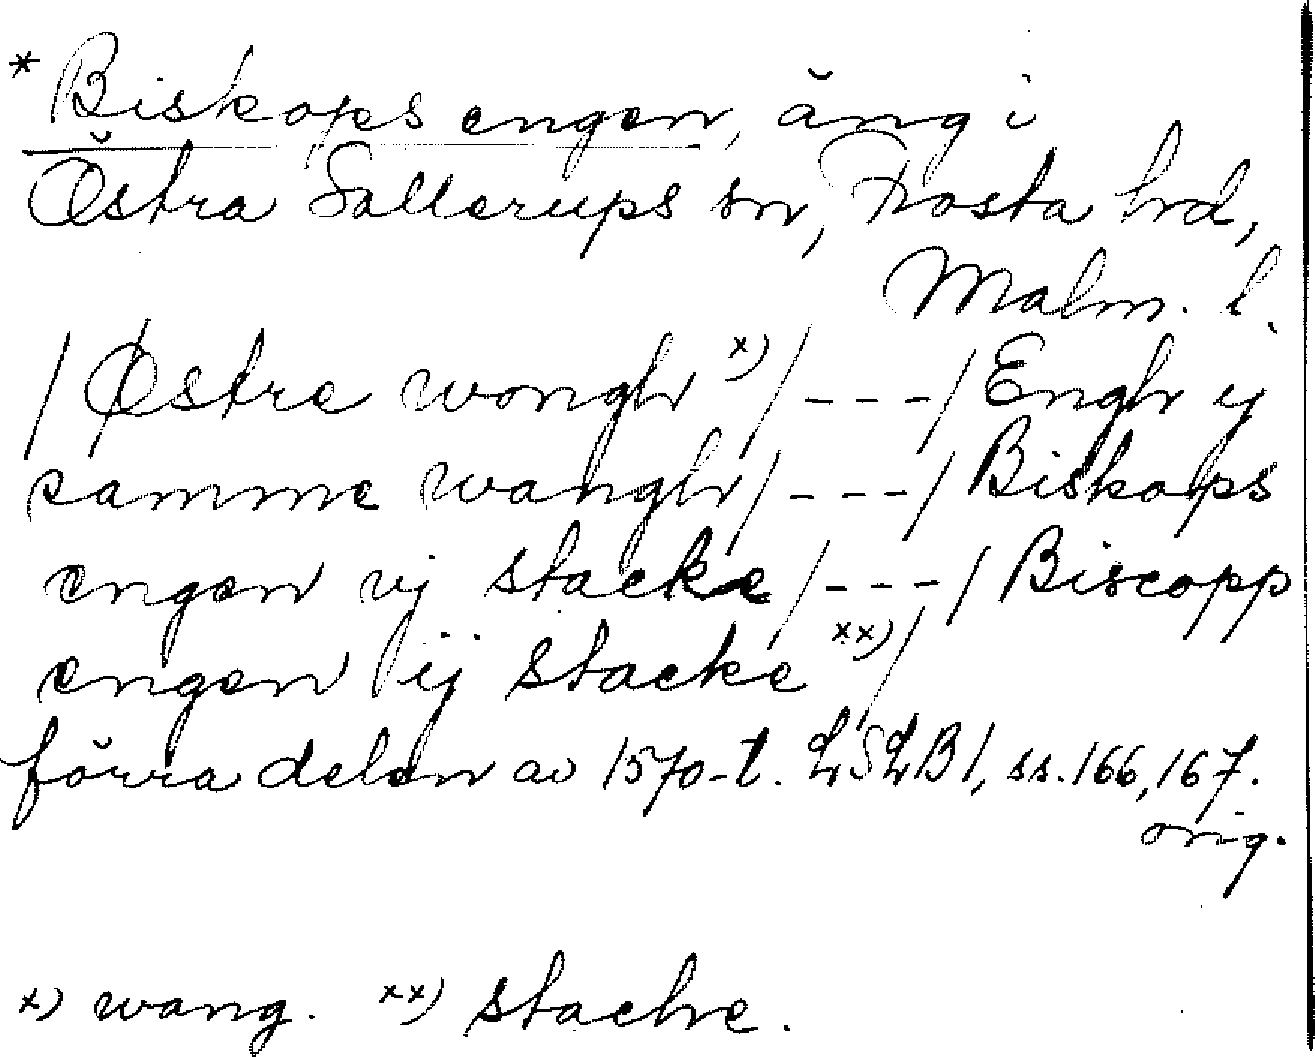 * Biskops engen, äng i
Östra Sallerups sn, Frosta hd,
Malm. l.
/Østre wongh x)/ - - - / Engh ij
samme wangh/ - - - / Biskops
engen vj stacke / - - - / Biscopp
engen ij stacke xx)/
förra delen av 1570-t. LSLB 1, ss. 166, 167.
orig.
x) wang. xx) stache.